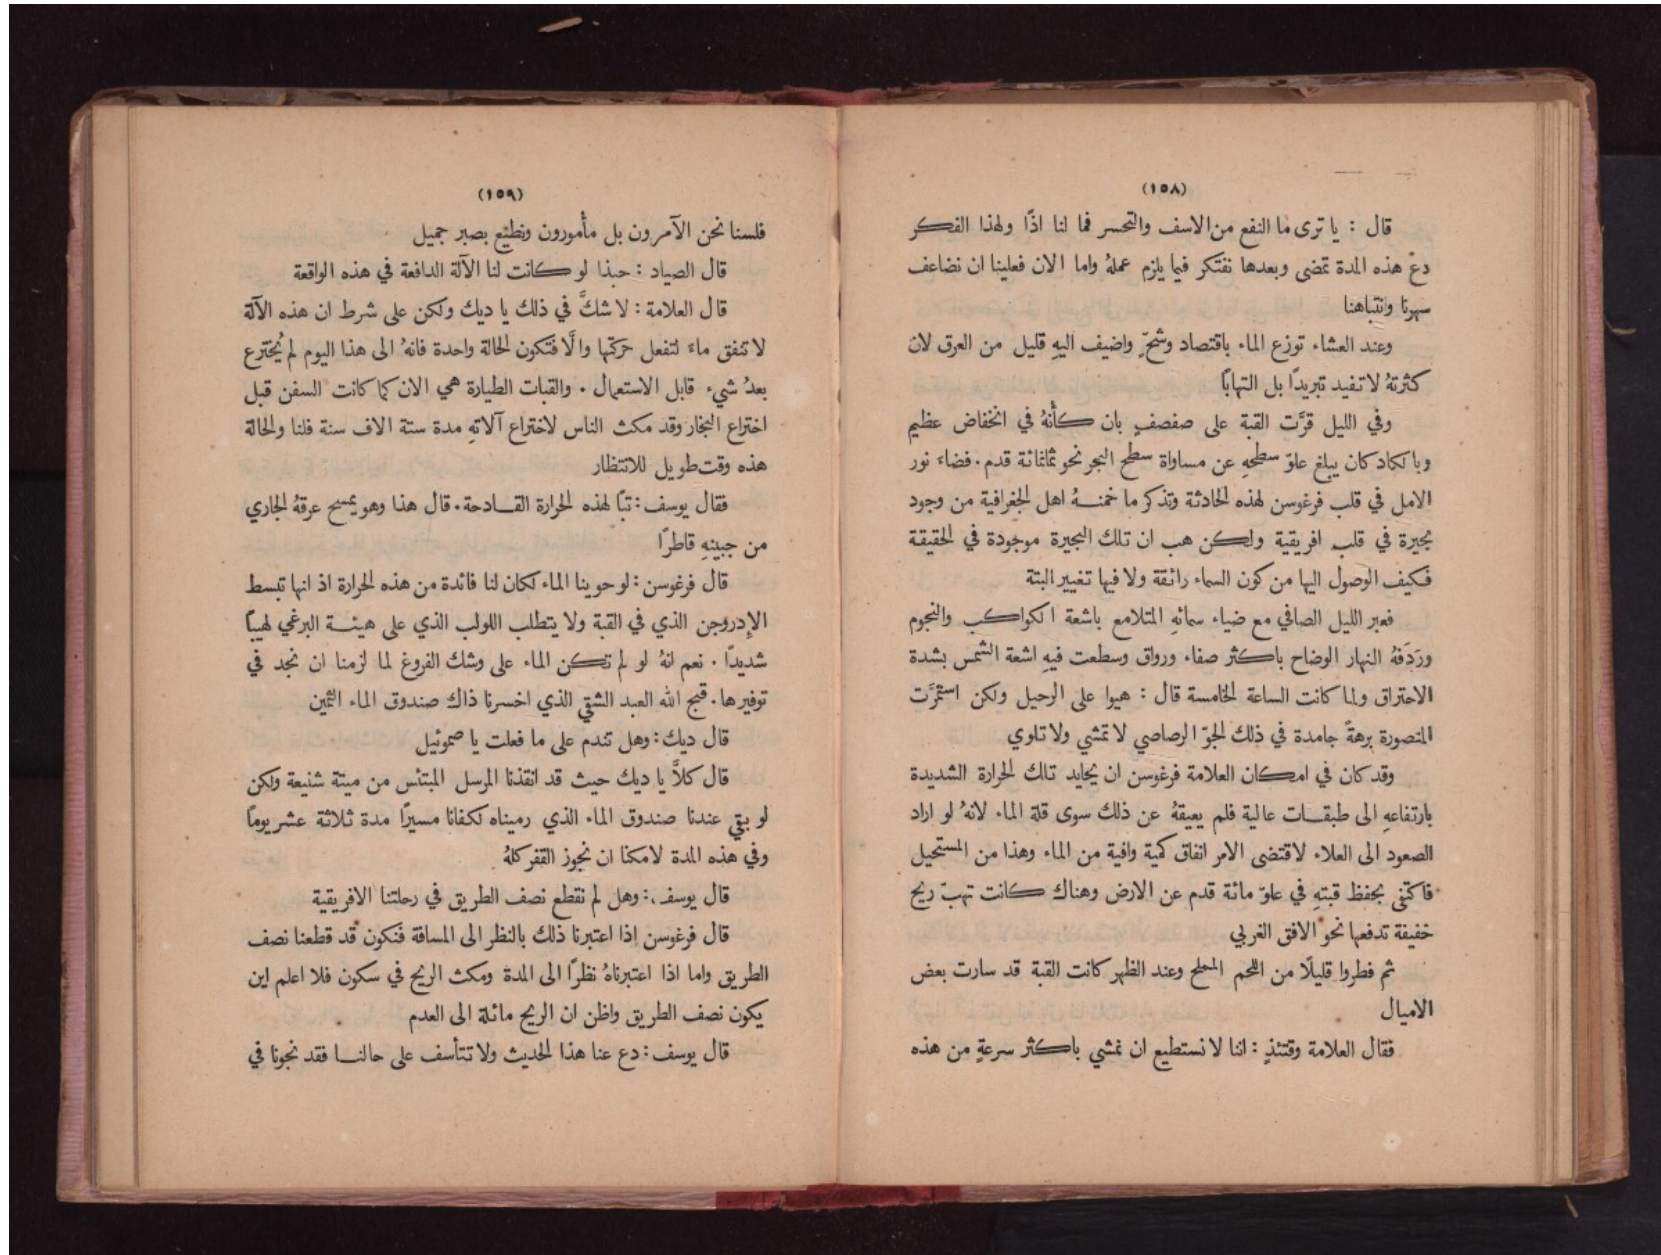 (١٥٨)
قال : يا ترى ما النفع من الاسف والتحسر فما لنا اذًا ولهذا الفكر
دعْ هذه المدة تمضى وبعدها نفتكر فيما يلزم عملهُ واما الان فعلينا ان نضاعف
سهرنا وانتباهنا
وعند العشاء توزع الماء باقتصاد وشحٍّ واضيف اليهِ قليل من العرق لان
كثرتهُ لا تفيد تبريدًا بل التهابًا
وفي الليل قرَّت القبة على صفصفٍ بان كأنهُ في انخفاض عظيم
وبالكاد كان يبلغ علوّ سطحهِ عن مساواة سطح البحر نحو ثمانمائة قدم. فضاءَ نور
الامل في قلب فرغوسن لهذه الحادثة وتذكر ما خمنهُ اهل الجغرافية من وجود
بحيرة في قلب افريقية ولكن هب ان تلك البحيرة موجودة في الحقيقة
فكيف الوصول اليها من كون السماء رائقة ولا فيها تغيير البتة
فعبر الليل الصافي مع ضياء سمائهِ المتلامع باشعة الكواكب والنجوم
ورَدَفهُ النهار الوضاح باكثر صفاء ورواق وسطعت فيهِ اشعة الشمس بشدة
الاحتراق ولما كانت الساعة الخامسة قال : هيوا على الرحيل ولكن استمرَّت
المنصورة برهةً جامدة في ذلك الجوّ الرصاصي لا تمشي ولا تلوي
وقد كان في امكان العلامة فرغوسن ان يحايد تلك الحرارة الشديدة
بارتفاعهِ الى طبقات عالية فلم يعيقهُ عن ذلك سوى قلة الماء لانهُ لو اراد
الصعود الى العلاء لاقتضى الامر انفاق كمية وافية من الماء وهذا من المستحيل
فاكتفى بحفظ قبتهِ في علوّ مائة قدم عن الارض وهناك كانت تهبّ ريح
خفيفة تدفعها نحو الافق الغربي
ثم فطروا قليلًا من اللحم المملح وعند الظهر كانت القبة قد سارت بعض
الاميال
فقال العلامة وقتئذٍ : اننا لا نستطيع ان نمشي باكثر سرعةٍ من هذه
(١٥٩)
فلسنا نحن الآمرون بل مأمورون ونطيع بصبر جميل
قال الصياد : حبذا لو كانت لنا الآلة الدافعة في هذه الواقعة
قال العلامة : لا شكَّ في ذلك يا ديك ولكن على شرط ان هذه الآلة
لا تنفق ماءَ لتفعل حركتها والَّا فتكون لحالة واحدة فانهُ الى هذا اليوم لم يُخترع
بعدُ شيء قابل الاستعمال . والقبات الطيارة هي الان كما كانت السفن قبل
اختراع البخار وقد مكث الناس لاختراع آلاتهِ مدة ستة الاف سنة فلنا ولحالة
هذه وقت طويل للانتظار
فقال يوسف : تبًّا لهذه الحرارة القادحة. قال هذا وهو يمسح عرقهُ الجاري
من جبينهِ قاطرًا
قال فرغوسن : لو حوينا الماء لكان لنا فائدة من هذه الحرارة اذ انها تبسط
الإدروجن الذي في القبة ولا يتطلب اللولب الذي على هيئة البرغي لهيبًا
شديدًا . نعم انهُ لو لم تكن الماء على وشك الفروغ لما لزمنا ان نجد في
توفيرها . قبح الله العبد الشقي الذي اخسرنا ذاك صندوق الماء الثمين
قال ديك : وهل تندم على ما فعلت يا صموئيل
قال كلاَّ يا ديك حيث قد انقذنا المرسل المبتئس من ميتة شنيعة ولكن
لو بقي عندنا صندوق الماء الذي رميناه لكفانا مسيرًا مدة ثلاثة عشر يومًا
وفي هذه المدة لامكنا ان نجوز القفر كلهُ
قال يوسف : وهل لم نقطع نصف الطريق في رحلتنا الافريقية
قال فرغوسن اذا اعتبرنا ذلك بالنظر الى المسافة فنكون قد قطعنا نصف
الطريق واما اذا اعتبرناهُ نظرًا الى المدة ومكث الريح في سكون فلا اعلم اين
يكون نصف الطريق واظن ان الريح مائلة الى العدم
قال يوسف : دع عنا هذا الحديث ولا تتأسف على حالنا فقد نجونا في